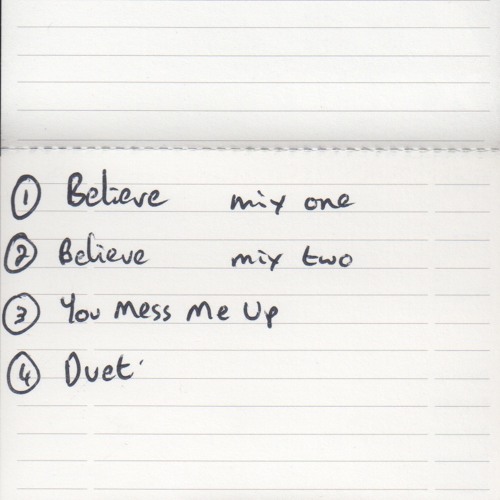 ① Believe mix one
② Believe mix two
③ You Mess Me Up
④ Duet